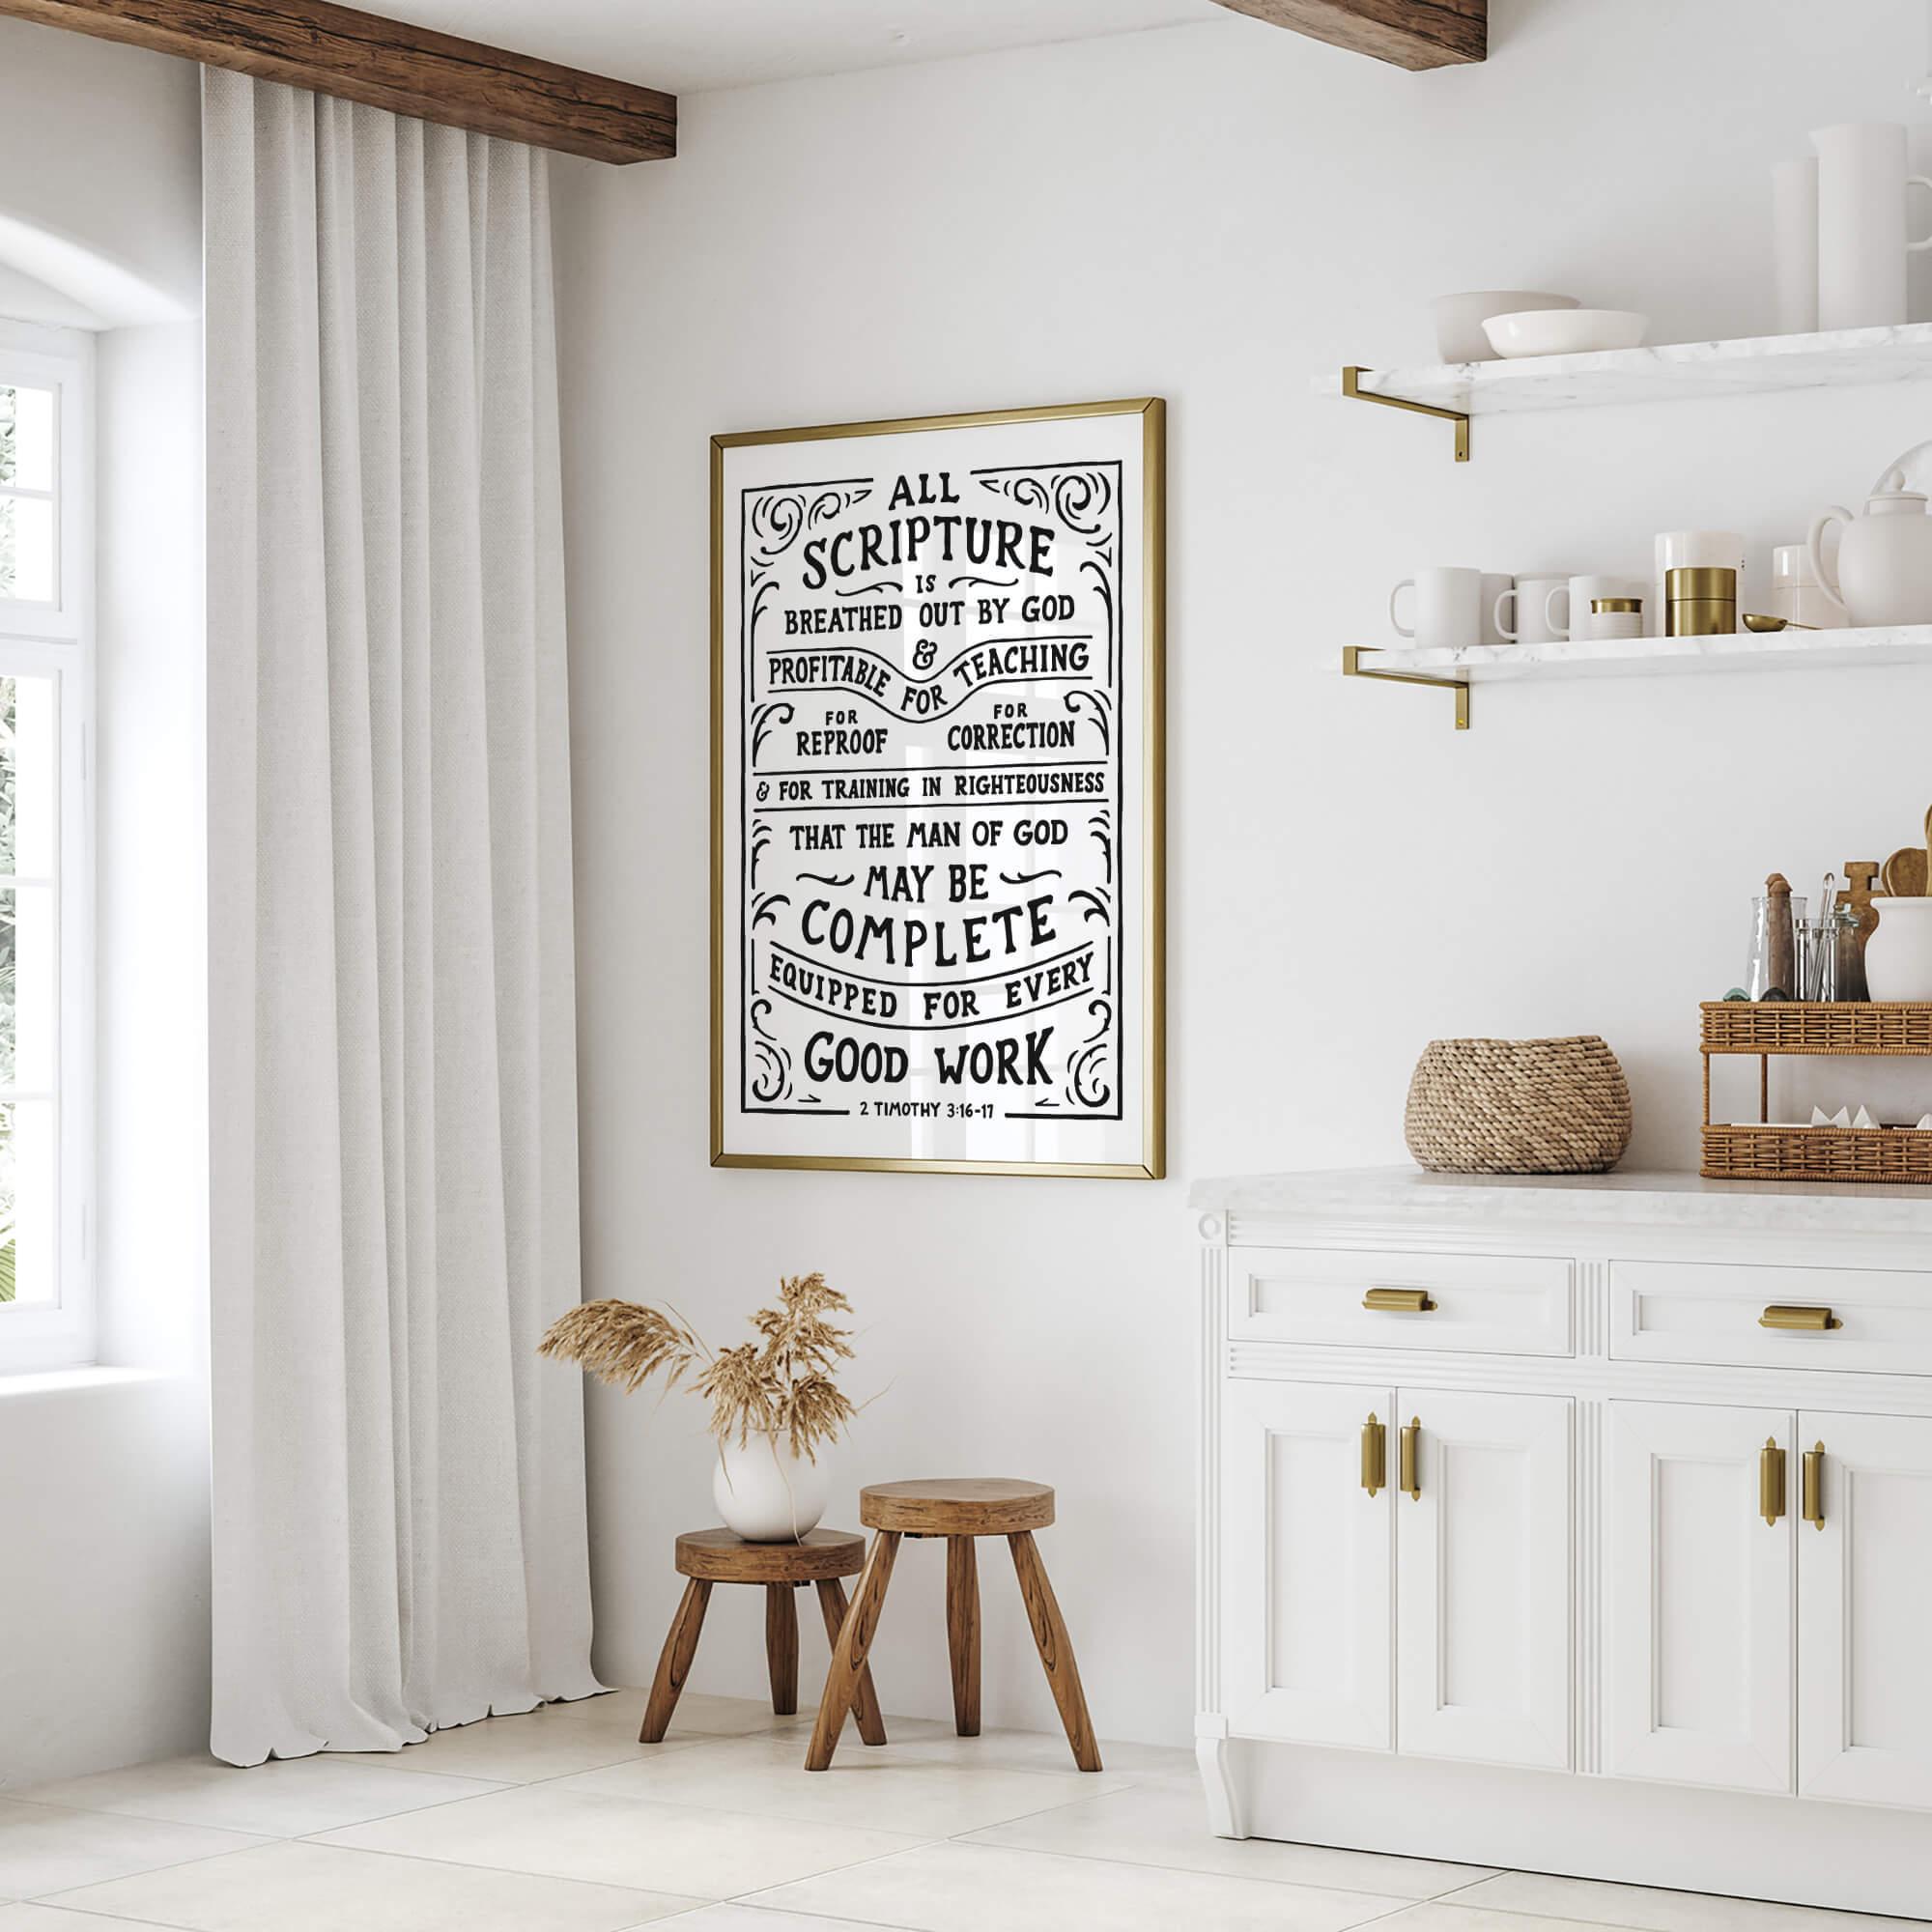 ALL
SCRIPTURE
IS
BREATHED OUT BY GOD
&
PROFITABLE FOR TEACHING
FOR REPROOF
FOR CORRECTION
& FOR TRAINING IN RIGHTEOUSNESS
THAT THE MAN OF GOD
MAY BE
COMPLETE
EQUIPPED FOR EVERY
GOOD WORK
2 TIMOTHY 3:16-17